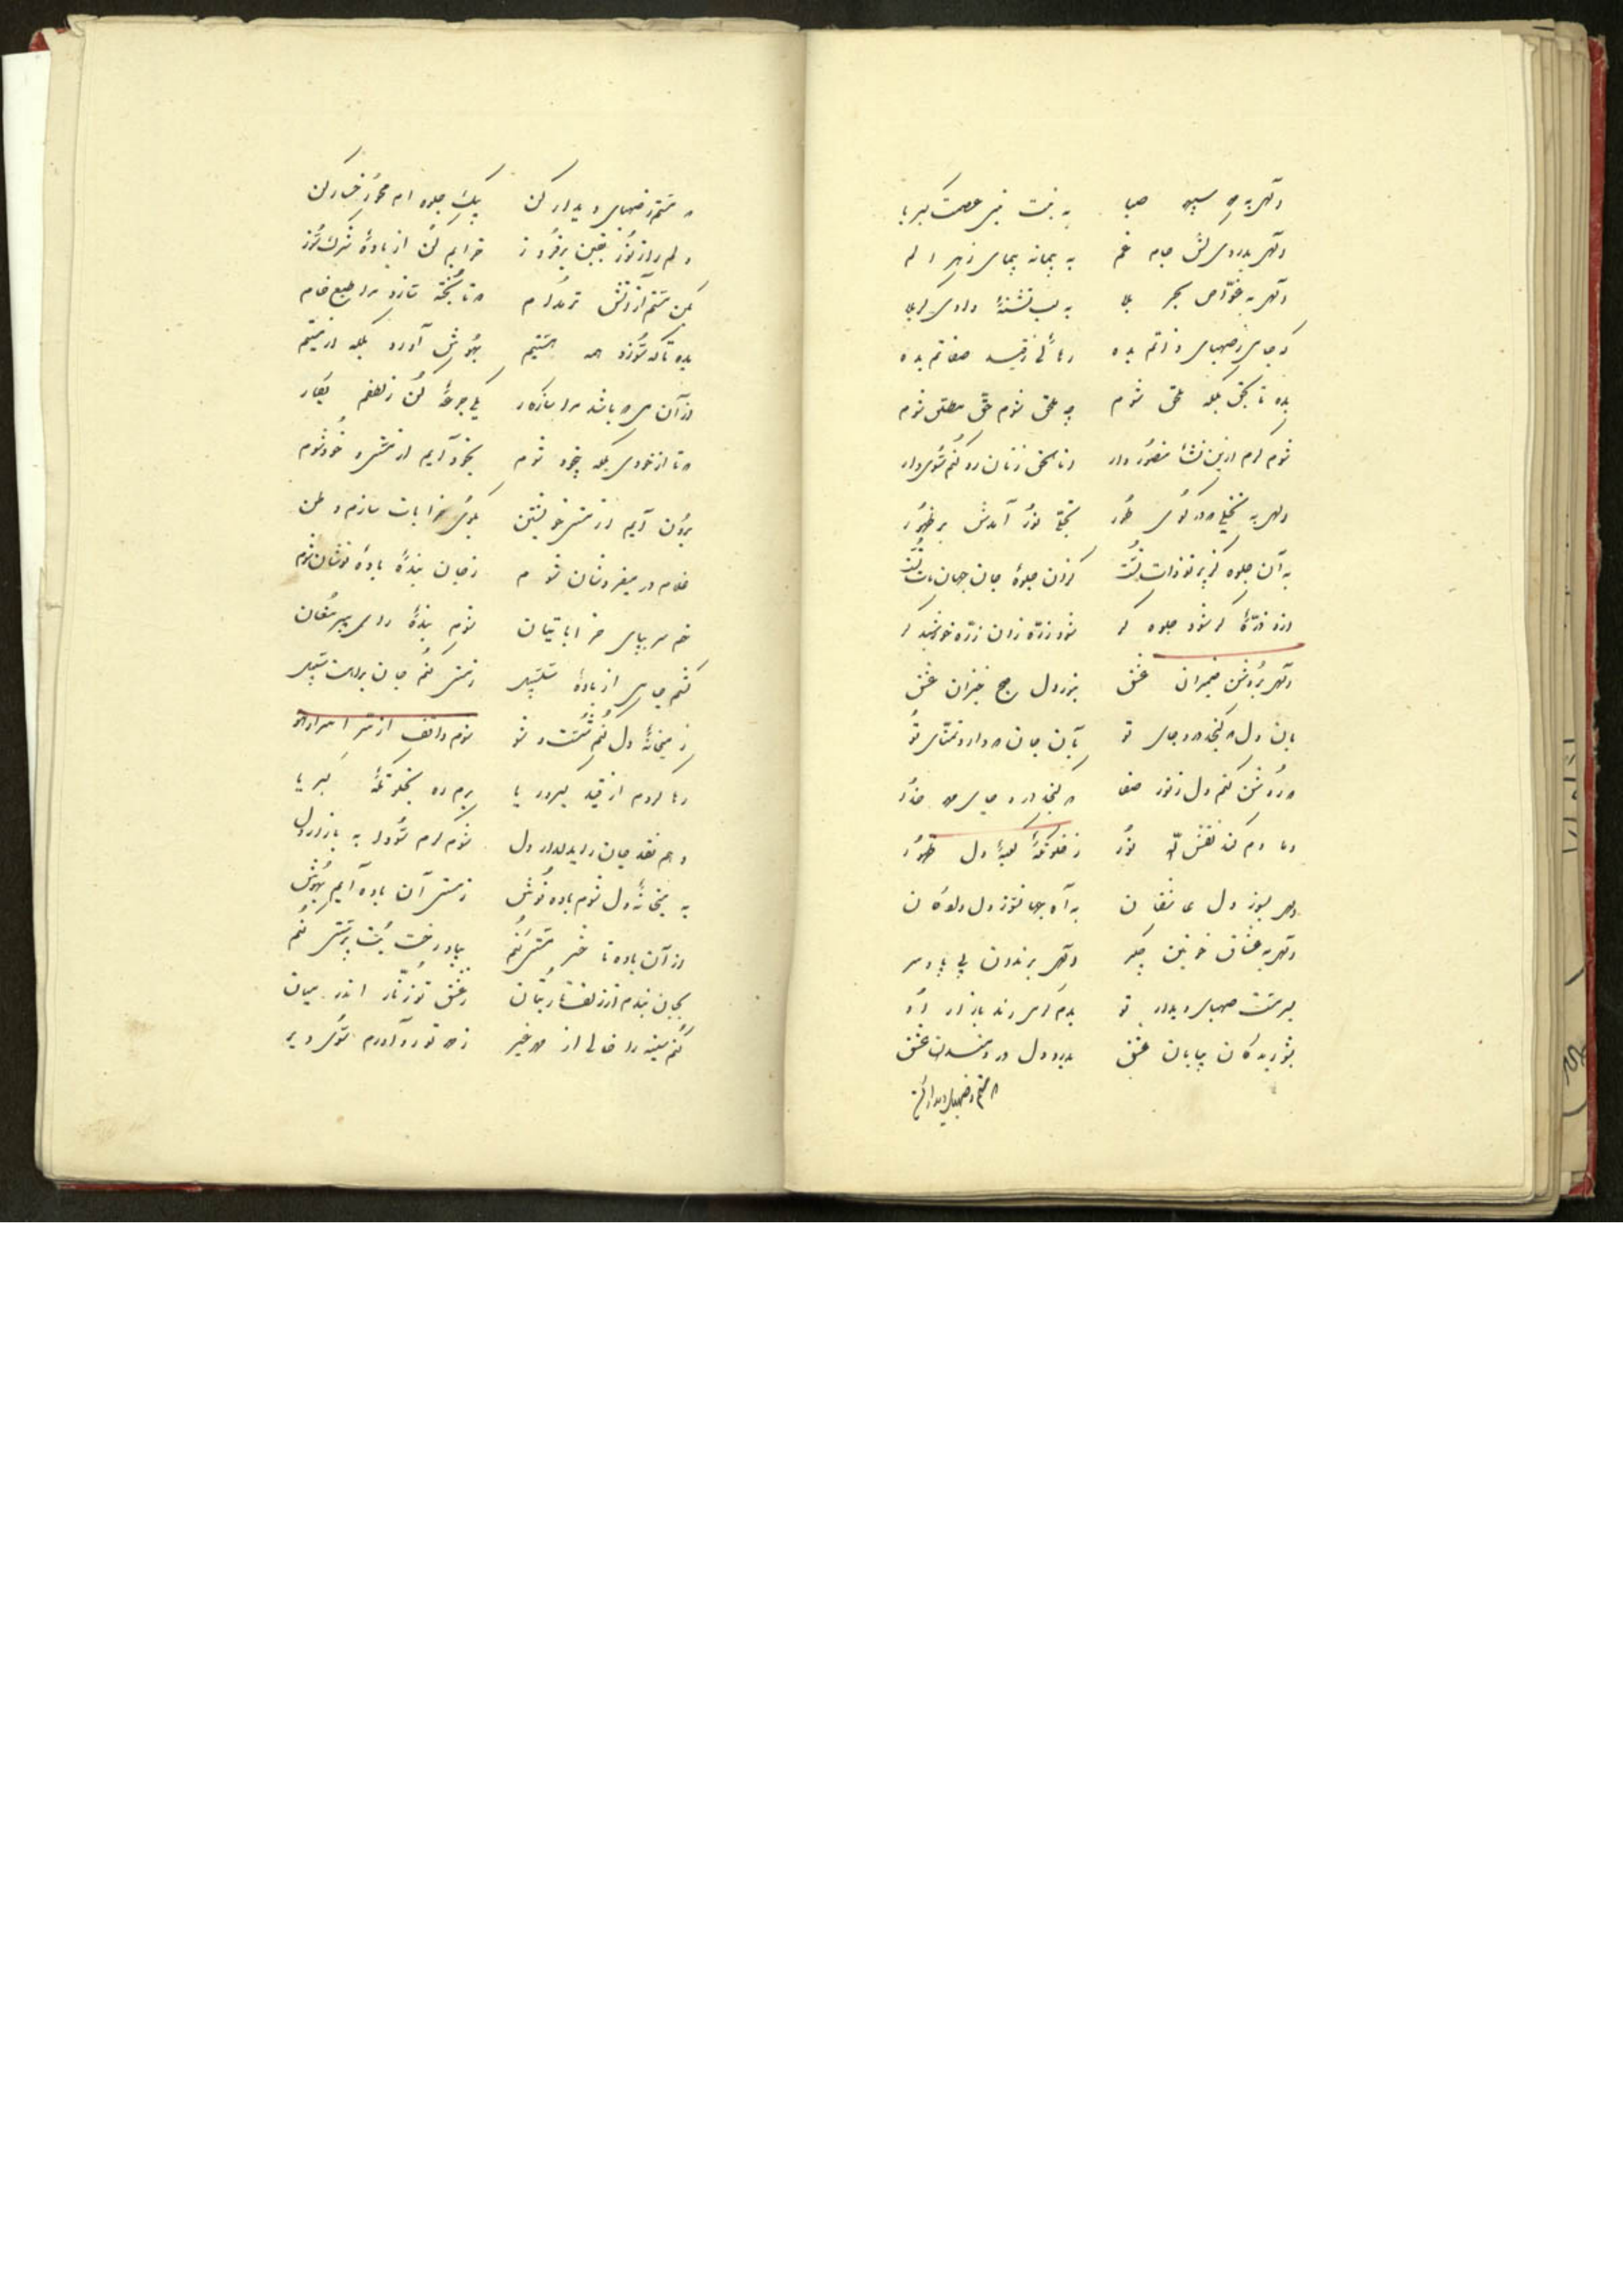 الهی به سپهر حیا به بنت نبی عصمت کبریا
الهی بدردی کش جام غم به پیمانه پیمای زهر الم
الهی به غواص بحر بلا به لب تشنهٔ وادی کربلا
که جامی ز صهبای ذاتم بده رهائی ز قید صفاتم بده
بده تا بحق بلکه ملحق شوم چه ملحق شوم حق مطلق شوم
شوم گرم ازین نشأ منصور وار انا الحق زنان رو کنم سوی دار
الهی به نخلی که در کوی طور تجلی نور آمدش بر ظهور
به آن جلوه کز پرتو ذات تست کزان جلوهٔ جان جهان مات تست
از او ذرهٔ گر شود جلوه گر شود ذره زان ذره خورشید گر
الهی بروشن ضمیران عشق بنور دل صبح خیزان عشق
بان دل که گنجد در او جای تو بآن جان که دارد تمنای تو
که روشن کنم دل ز نور صفا که گنجد در او جای مهر خدا
دمادم کند نقش الله نور ز خلوتگه کعبهٔ دل ظهور
الهی بسوز دل بآه بی دل
الهی بعشاق خونین جگر الهی برندان بی پا و سر
بسرمست صهبای دیدار تو بدم گرمی رند بازار تو
بشوریدگان بیابان عشق بدرد دل دردمندان عشق
که مستم ز صهبای دیدار کن
که مستم ز صهبای دیدار کن بیک جلوه ام محو رخسار کن
دلم را ز نور یقین بر فروز خرابم کن از بادهٔ شرک سوز
بکن مستم از آتش تر مدام که تا پخته سازد مرا طبع خام
بده تا که سوزد همه هستیم بهوش آورد بلکه از مستیم
از آن می که باشد مرا سازگار یکی جرعهٔ کن ز لطفم بکار
که تا از خودی بلکه بیخود شوم بخود آیم از مستی و خود شوم
برون آیم از مستی خویشتن بکوی خرابات سازم وطن
غلام در میفروشان شوم ز جان بندهٔ باده نوشان شوم
نهم سر بپای خراباتیان شوم بندهٔ رای پیر مغان
کشم جامی از بادهٔ ز مستی کنم جان
ز میخانهٔ دل کنم شست و شو شوم واقف از سر اسرار هو
رها گردم از قید کبر و ریا برم ره بخلوتگه کبریا
دهم نقد جان را بدلدار دل شوم گرم سودا به بازار دل
به میخانهٔ دل شوم باده نوش ز مستی آن باده آیم بهوش
از آن باده تا خبر مستی کنم بیاد رخت بت پرستی کنم
بجان بندم از زلف تار بتان ز عشق تو زنار اندر میان
کنم سینه را خالی از مهر غیر ز مهر تو رو آورم سوی دیر